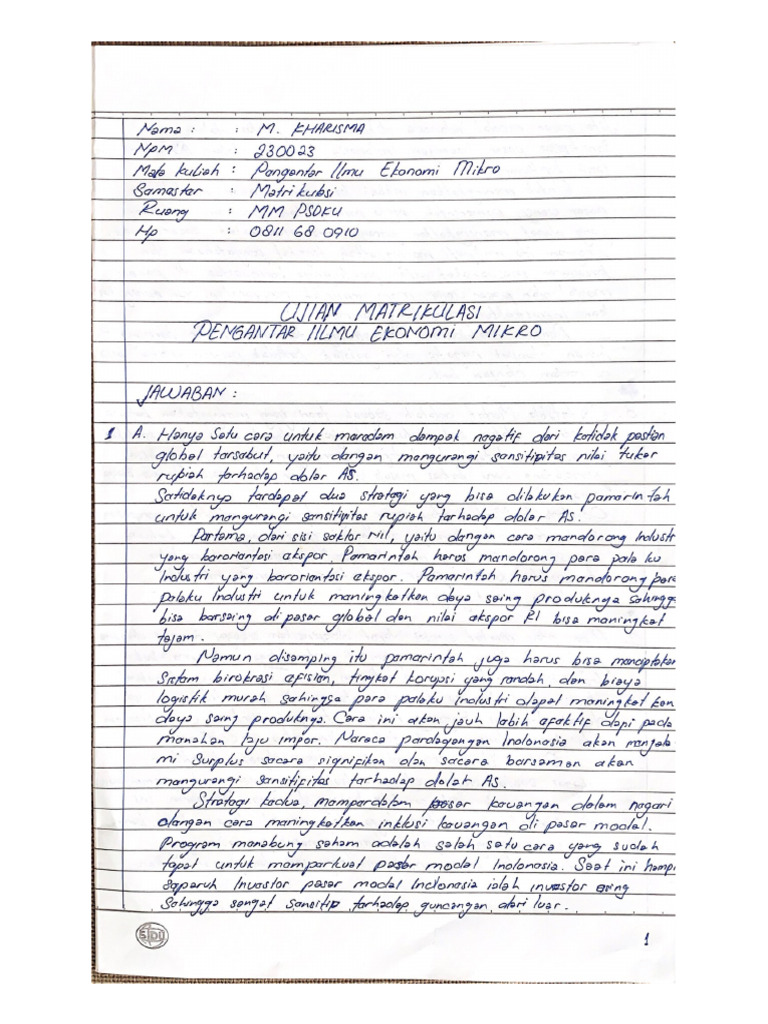 Nama : : M. KHARISMA
NPM : 230023
Mata kuliah : Pengantar Ilmu Ekonomi Mikro
Semester : Matrikulasi
Ruang : MM PSDKU
Hp : 0811 68 0910
UJIAN MATRIKULASI
PENGANTAR IILMU EKONOMI MIKRO
JAWABAN :
1 A. Hanya Satu cara untuk meredam dampak negatif dari ketidak pastian
global tersebut, yaitu dengan mengurangi sensitipitas nilai tukar
rupiah terhadap dolar AS.
Satidaknya terdapat dua strategi yang bisa dilakukan pemerintah
untuk mengurangi sensitipitas rupiah terhadap dolar AS.
Pertama, dari sisi sektor riil, yaitu dengan cara mendorong Industri
yang berorientasi ekspor. Pemerintah harus mendorong para pela ku
Industri yang berorientasi ekspor. Pemerintah harus mendorong para
pelaku Industri untuk meningkatkan daya saing produknya sehingga
bisa bersaing di pasar global dan nilai ekspor RI bisa meningkat
tajam.
Namun disamping itu pemerintah juga harus bisa menciptakan
Sistem birokrasi efisien, tingkat korupsi yang rendah, dan biaya
logistik murah sehingga para pelaku industri dapat meningkat kan
daya saing produknya. Cara ini akan jauh lebih efektif dari pada
menahan laju impor. Neraca perdagangan Indonesia akan mengala
mi Surplus secara signifikan dan secara bersamaan akan
mengurangi sensitifitas terhadap dolar AS.
Strategi kedua, memperdalam pasar keuangan dalam negeri
dengan cara meningkatkan inklusi keuangan di pasar modal.
Program menabung saham adalah salah satu cara yang sudah
tepat untuk memperkuat pasar modal Indonesia. Saat ini hampi
separuh Investor pasar modal Indonesia ialah investor asing
Sehingga sangat sensitip terhadap guncangan dari luar.
SIDU
1